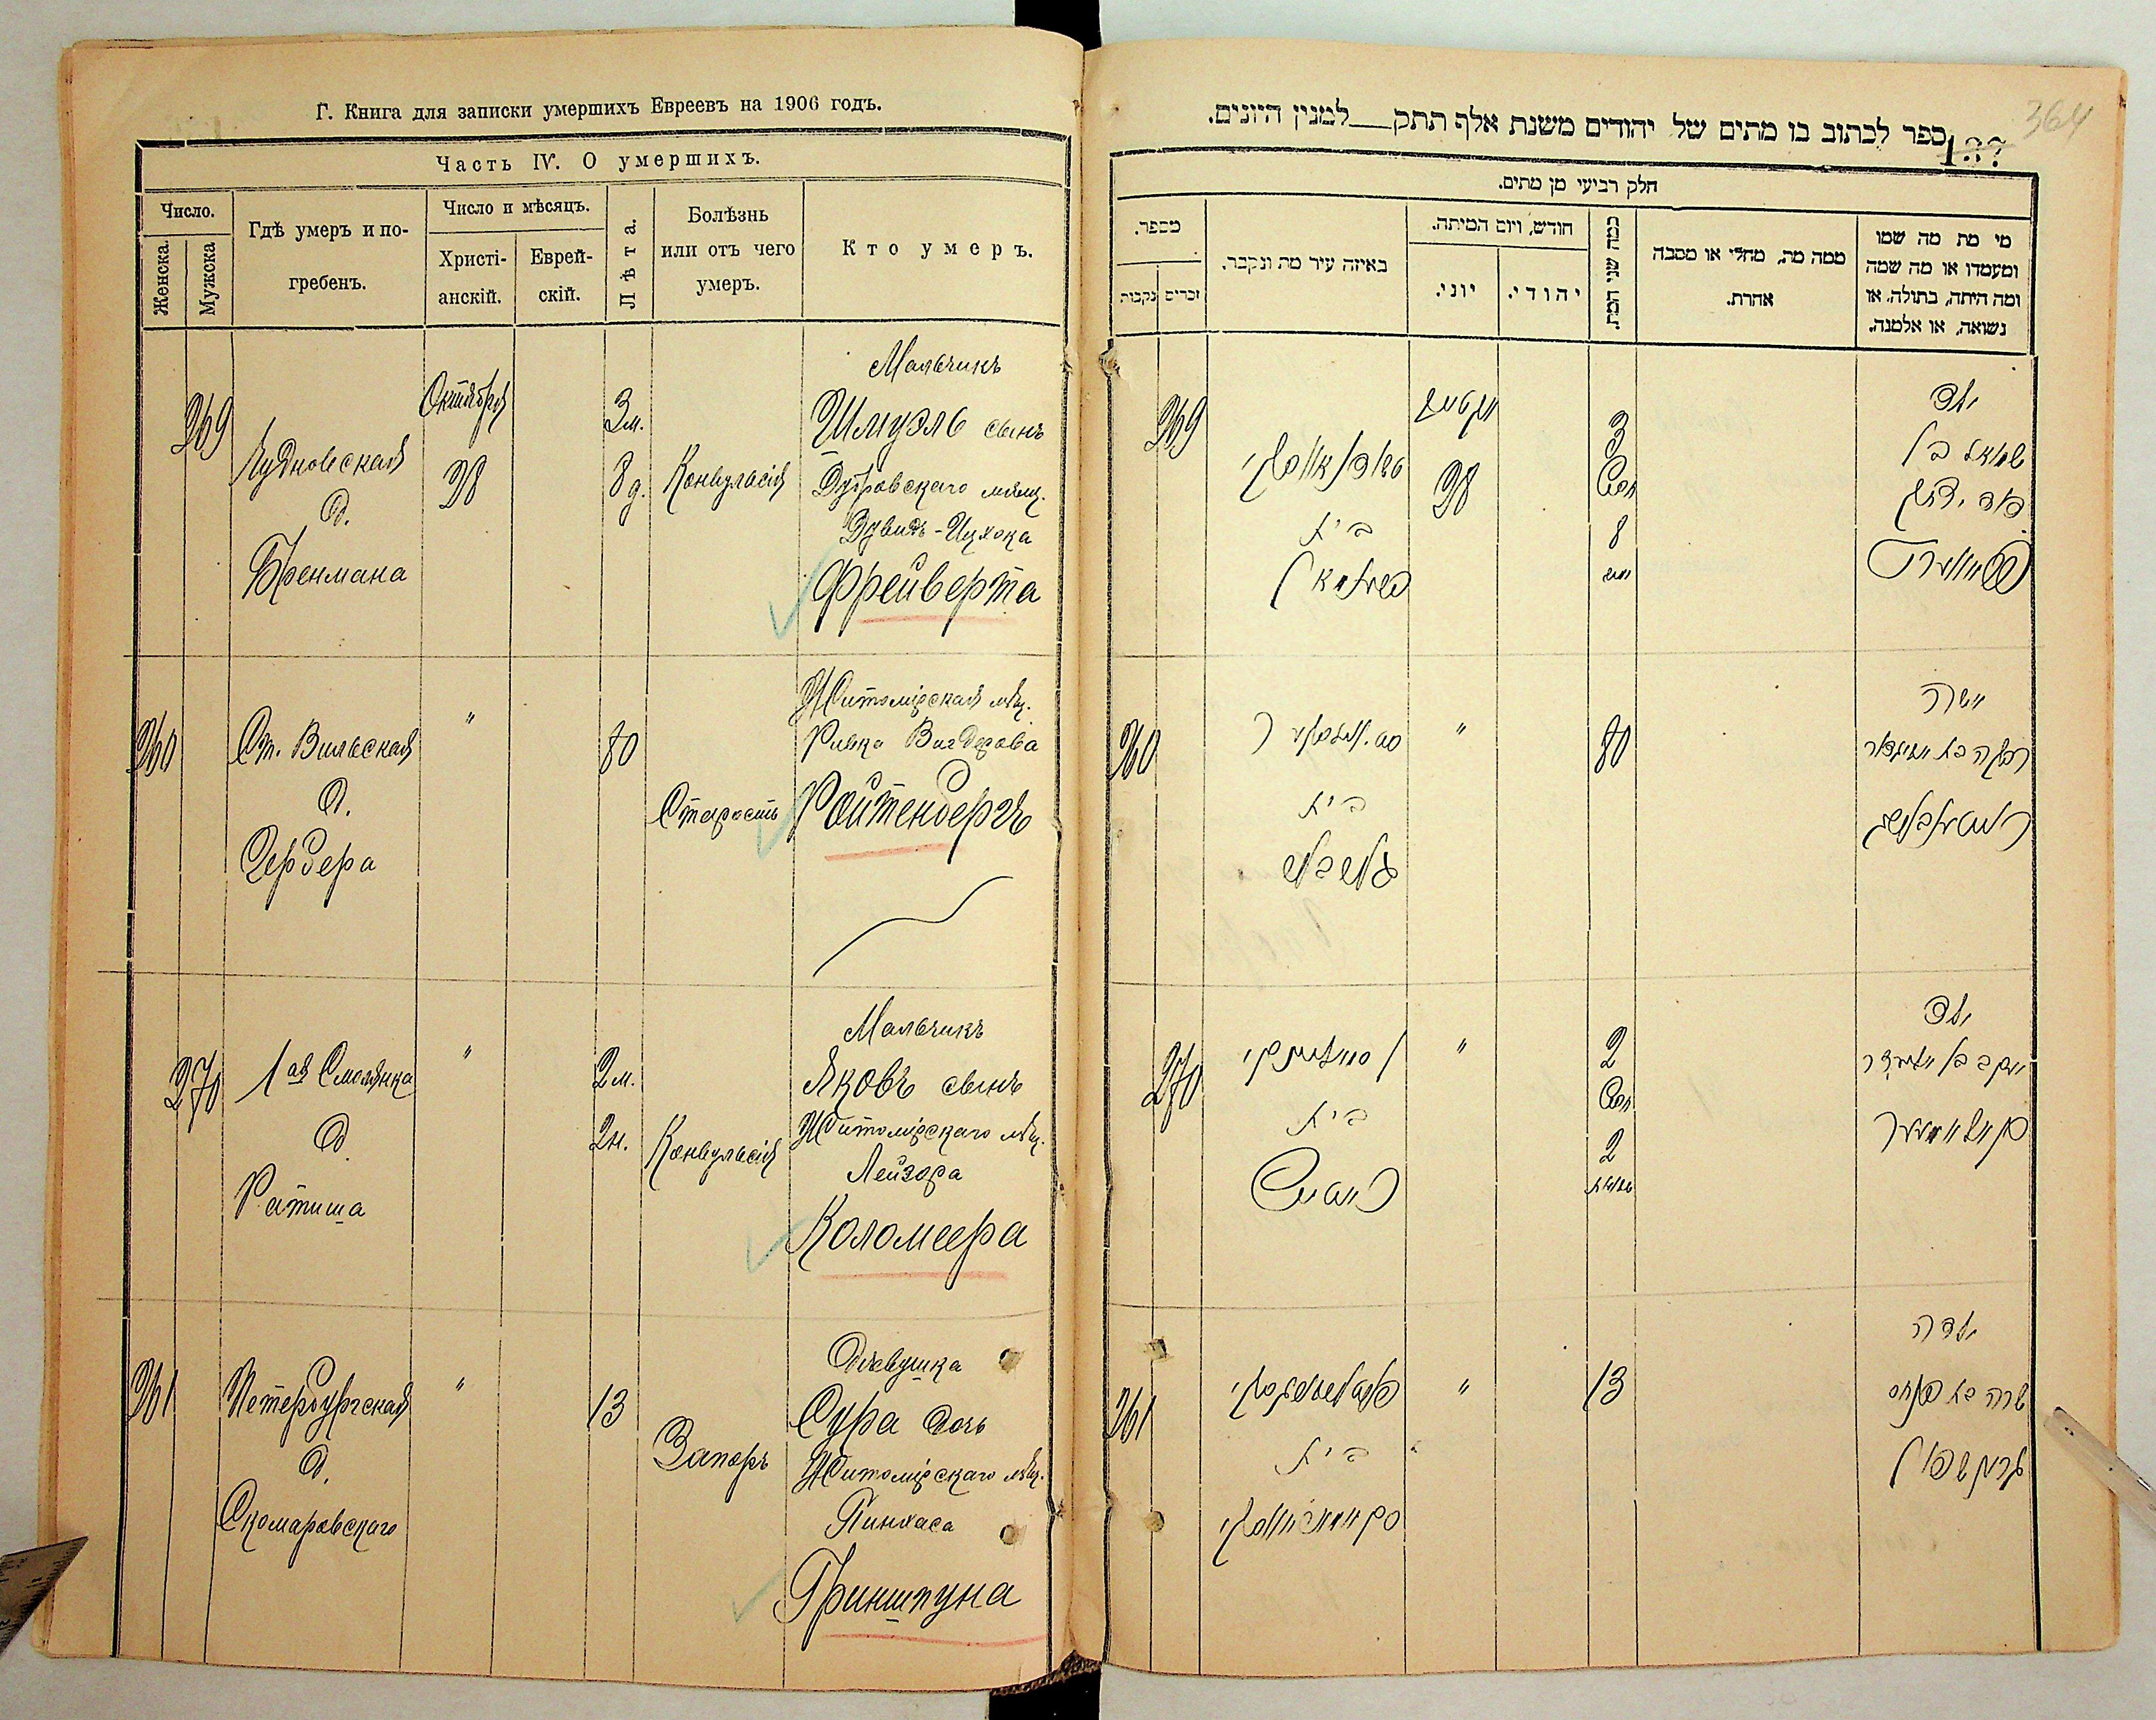 Г. Книга для записки умершихъ Евреевъ на 1906 годъ.
Часть IV. О умершихъ.
Число.
Женска.
Мужска
Гдѣ умеръ и по-
гребенъ.
Число и мѣсяцъ.
Христі-
анскій.
Еврей-
скій.
Лѣта.
Болѣзнь
или отъ чего
умеръ.
Кто умеръ.
269
Чудновская
д.
Бренмана
Октября
28
3 м.
8 д.
Конвульсія
Мальчикъ
Шмуэль сынъ
Дубровскаго мѣщ.
Дувидъ-Ицхока
Фрейверта
260
Ст. Вильская
д.
Гербера
"
80
Старость
Житомірская мѣщ.
Ривка Вигдорова
Ройтенбергъ
270
1ая Смолянка
д
Ратиша
"
2 м.
2 н.
Конвульсія
Мальчикъ
Яковъ сынъ
Житомірскаго мѣщ.
Лейзора
Коломеера
261
Петербургская
д.
Скомаровскаго
"
13
Запоръ
Дѣвушка
Сура дочь
Житомірскаго мѣщ.
Пинхаса
Гриншпуна
364
ספר לכתוב בו מתים של יהודים משנת אלף תתק למנין היונים.
חלק רביעי מן מתים.
מספר.
נקבות
זכרים
באיזה עיר מת ונקבר.
חודש, ויום המיתה.
יוני.
יהודי.
כמה שני המת.
ממה מת, מחלי או מסבה
אחרת.
מי מת מה שמו
ומעמדו או מה שמה
ומה היתה, בתולה, או
נשואה, או אלמנה.
269
בית
28
3
8
ילד
שמואל בן
260
בית
"
80
רבקה בת
270
בית
"
2
2
ילד
יעקב בן
261
בית
"
13
ילדה
שרה בת פנחס
גרינשפון